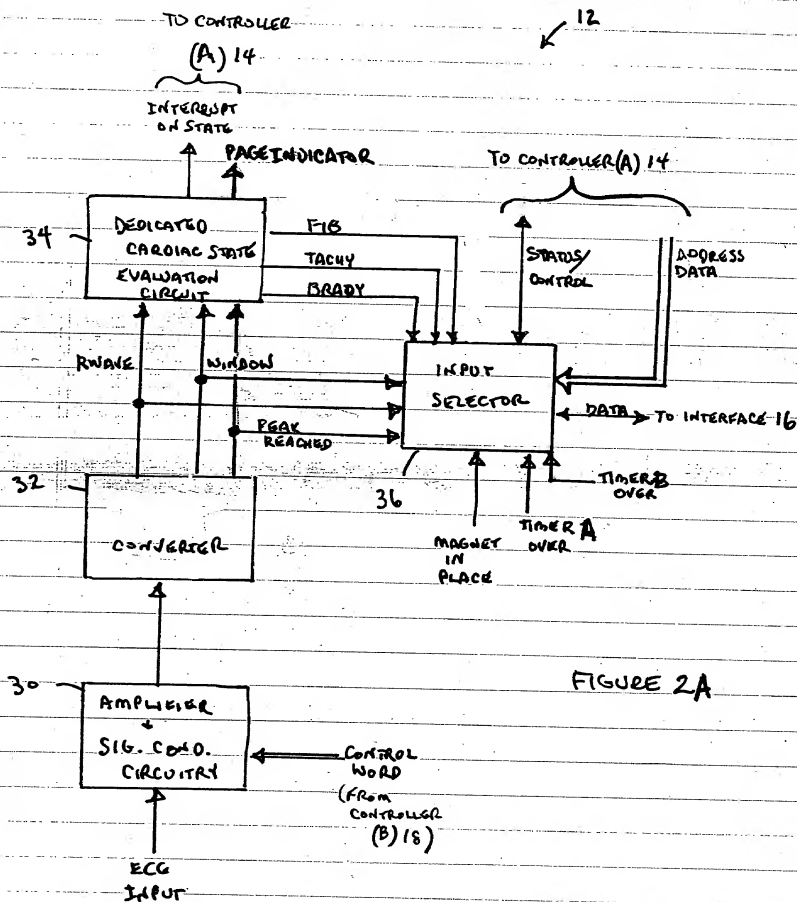 TO CONTROLLER
(A) 14
12
INTERRUPT
ON STATE
PAGE INDICATOR
TO CONTROLLER (A) 14
34
DEDICATED
CARDIAC STATE
EVALUATION
CIRCUIT
FIB
TACHY
BRADY
STATUS/
CONTROL
ADDRESS
DATA
RWAVE
WINDOW
INPUT
SELECTOR
DATA
TO INTERFACE 16
PEAK
REACHED
32
36
TIMER B
OVER
CONVERTER
MAGNET
IN
PLACE
TIMER A
OVER
30
FIGURE 2A
AMPLIFIER
+
SIG. COND.
CIRCUITRY
CONTROL
WORD
(FROM
CONTROLLER
(B) 18)
ECG
INPUT